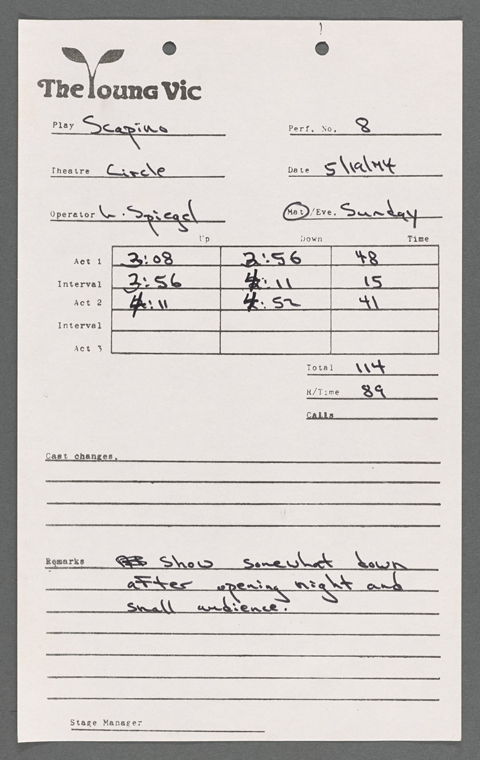 The Young Vic
Play Scapino Perf. No. 8
Theatre Circle Date 5/19/74
Operator L. Spiegel Mat/Eve. Sunday
Up Down Time
Act 1 3:08 3:56 48
Interval 3:56 4:11 15
Act 2 4:11 4:52 41
Interval
Act 3
Total 114
R/Time 89
Calls
Cast changes.
Remarks Show somewhat down
after opening night and
small audience.
Stage Manager